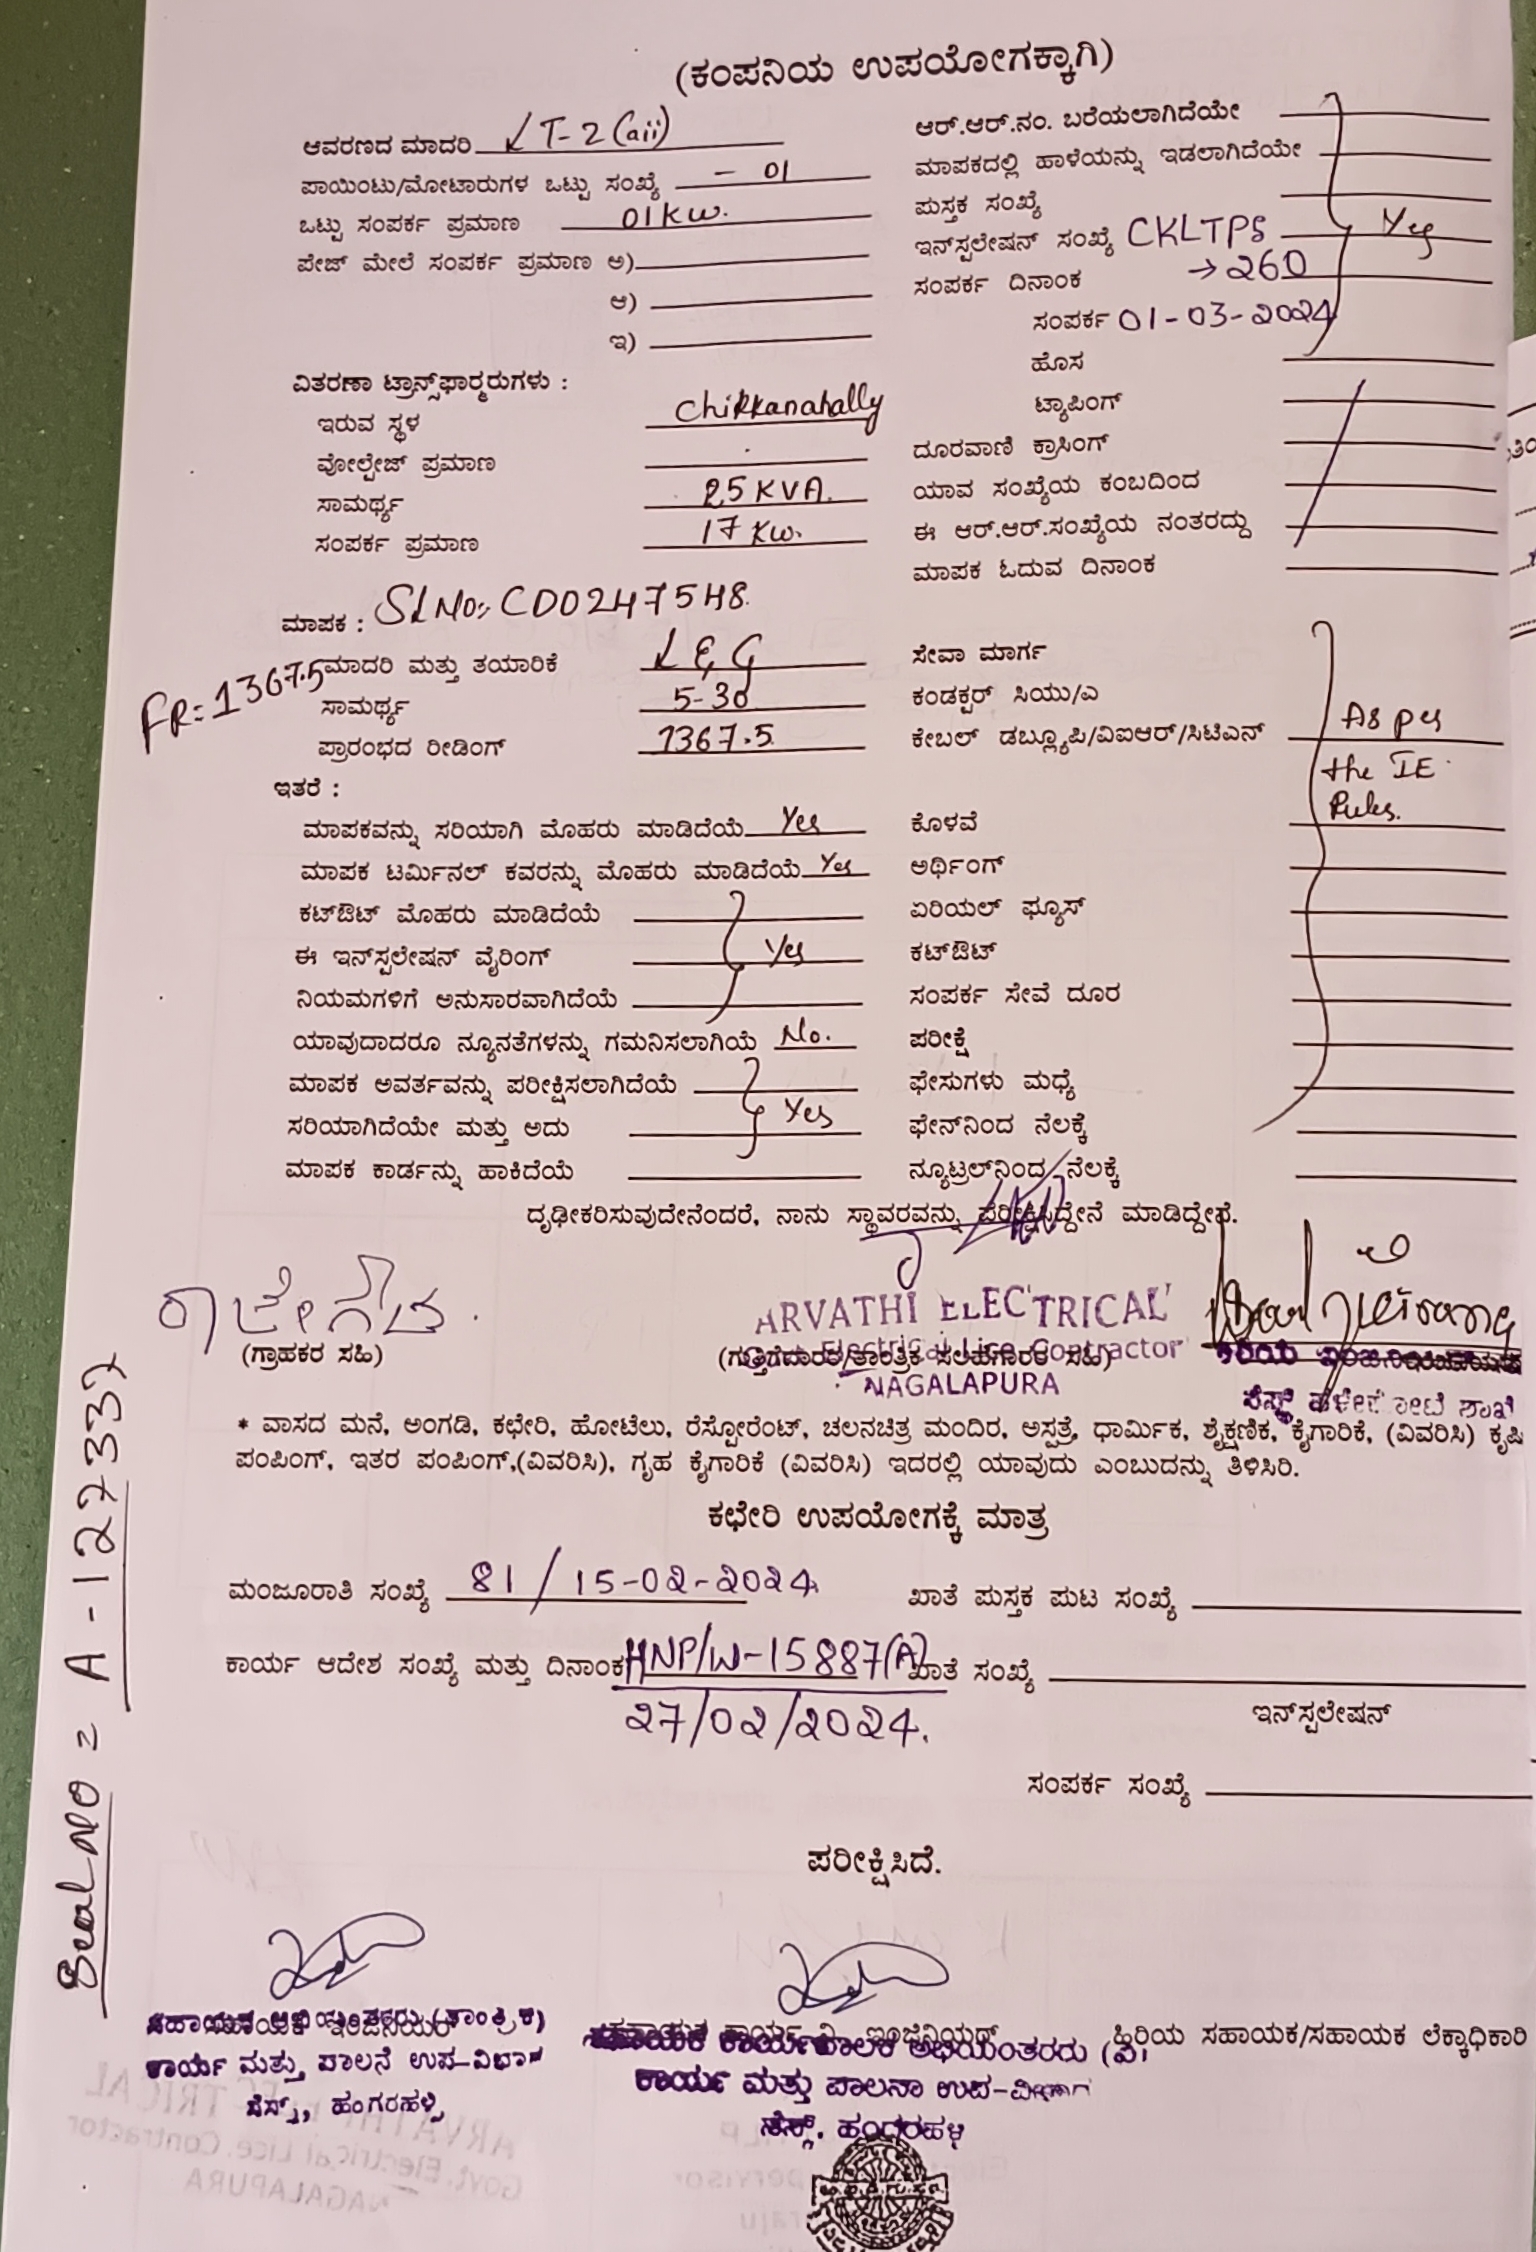 (ಕಂಪನಿಯ ಉಪಯೋಗಕ್ಕಾಗಿ)
ಆವರಣದ ಮಾದರಿ LT-2(aii)
ಪಾಯಿಂಟು/ಮೋಟಾರುಗಳ ಒಟ್ಟು ಸಂಖ್ಯೆ - 01
ಒಟ್ಟು ಸಂಪರ್ಕ ಪ್ರಮಾಣ 01 KW.
ಪೇಜ್ ಮೇಲೆ ಸಂಪರ್ಕ ಪ್ರಮಾಣ ಅ)
ಆ)
ಇ)
ವಿತರಣಾ ಟ್ರಾನ್ಸ್‌ಫಾರ್‍ಮರುಗಳು :
ಇರುವ ಸ್ಥಳ Chikkanahally
ವೋಲ್ಟೇಜ್ ಪ್ರಮಾಣ
ಸಾಮರ್ಥ್ಯ 25 KVA.
ಸಂಪರ್ಕ ಪ್ರಮಾಣ 17 KW.
ಮಾಪಕ : SL No:- CD0247548
ಮಾದರಿ ಮತ್ತು ತಯಾರಿಕೆ L & G
FR = 1367.5
ಸಾಮರ್ಥ್ಯ 5-30
ಪ್ರಾರಂಭದ ರೀಡಿಂಗ್ 1367.5
ಇತರೆ :
ಮಾಪಕವನ್ನು ಸರಿಯಾಗಿ ಮೊಹರು ಮಾಡಿದೆಯೆ Yes
ಮಾಪಕ ಟರ್ಮಿನಲ್ ಕವರನ್ನು ಮೊಹರು ಮಾಡಿದೆಯೆ Yes
ಕಟ್‌ಔಟ್ ಮೊಹರು ಮಾಡಿದೆಯೆ
ಈ ಇನ್‌ಸ್ಪಲೇಷನ್ ವೈರಿಂಗ್ Yes
ನಿಯಮಗಳಿಗೆ ಅನುಸಾರವಾಗಿದೆಯೆ
ಯಾವುದಾದರೂ ನ್ಯೂನತೆಗಳನ್ನು ಗಮನಿಸಲಾಗಿಯೆ No.
ಮಾಪಕ ಅವರ್ತವನ್ನು ಪರೀಕ್ಷಿಸಲಾಗಿದೆಯೆ
ಸರಿಯಾಗಿದೆಯೇ ಮತ್ತು ಅದು Yes
ಮಾಪಕ ಕಾರ್ಡನ್ನು ಹಾಕಿದೆಯೆ
ಆರ್.ಆರ್.ನಂ. ಬರೆಯಲಾಗಿದೆಯೇ
ಮಾಪಕದಲ್ಲಿ ಹಾಳೆಯನ್ನು ಇಡಲಾಗಿದೆಯೇ
ಪುಸ್ತಕ ಸಂಖ್ಯೆ
ಇನ್‌ಸ್ಪಲೇಷನ್ ಸಂಖ್ಯೆ CKLTPS Yes
ಸಂಪರ್ಕ ದಿನಾಂಕ → 260
ಸಂಪರ್ಕ 01-03-2024
ಹೊಸ
ಟ್ಯಾಪಿಂಗ್
ದೂರವಾಣಿ ಕ್ರಾಸಿಂಗ್
ಯಾವ ಸಂಖ್ಯೆಯ ಕಂಬದಿಂದ
ಈ ಆರ್.ಆರ್.ಸಂಖ್ಯೆಯ ನಂತರದ್ದು
ಮಾಪಕ ಓದುವ ದಿನಾಂಕ
ಸೇವಾ ಮಾರ್ಗ
ಕಂಡಕ್ಟರ್ ಸಿಯು/ಎ
ಕೇಬಲ್ ಡಬ್ಲ್ಯೂಪಿ/ವಿಐಆರ್/ಸಿಟಿಎನ್ As per
the IE
ಕೊಳವೆ Rules.
ಅರ್ಥಿಂಗ್
ಏರಿಯಲ್ ಫ್ಯೂಸ್
ಕಟ್‌ಔಟ್
ಸಂಪರ್ಕ ಸೇವೆ ದೂರ
ಪರೀಕ್ಷೆ
ಫೇಸುಗಳು ಮಧ್ಯೆ
ಫೇಸ್‌ನಿಂದ ನೆಲಕ್ಕೆ
ನ್ಯೂಟ್ರಲ್‌ನಿಂದ ನೆಲಕ್ಕೆ
ದೃಢೀಕರಿಸುವುದೇನೆಂದರೆ, ನಾನು ಸ್ಥಾವರವನ್ನು ಪರೀಕ್ಷಿಸಿದ್ದೇನೆ ಮಾಡಿದ್ದೇನೆ.
ರಾಜೇಗೌಡ.
(ಗ್ರಾಹಕರ ಸಹಿ)
ARVATHI ELECTRICAL
Electrical Lice Contractor
(ಗುತ್ತಿಗೆದಾರರ/ತಾಂತ್ರಿಕ ಸಲಹೆಗಾರರ ಸಹಿ)
NAGALAPURA
ಕಿರಿಯ
ಸೆಸ್ಕ್ ಹಳೇಕೋಟೆ ಶಾಖೆ
* ವಾಸದ ಮನೆ, ಅಂಗಡಿ, ಕಛೇರಿ, ಹೋಟೆಲು, ರೆಸ್ಟೋರೆಂಟ್, ಚಲನಚಿತ್ರ ಮಂದಿರ, ಅಸ್ಪತ್ರೆ, ಧಾರ್ಮಿಕ, ಶೈಕ್ಷಣಿಕ, ಕೈಗಾರಿಕೆ, (ವಿವರಿಸಿ) ಕೃಷಿ
ಪಂಪಿಂಗ್, ಇತರ ಪಂಪಿಂಗ್,(ವಿವರಿಸಿ), ಗೃಹ ಕೈಗಾರಿಕೆ (ವಿವರಿಸಿ) ಇದರಲ್ಲಿ ಯಾವುದು ಎಂಬುದನ್ನು ತಿಳಿಸಿರಿ.
ಕಛೇರಿ ಉಪಯೋಗಕ್ಕೆ ಮಾತ್ರ
ಮಂಜೂರಾತಿ ಸಂಖ್ಯೆ 81 / 15-02-2024 ಖಾತೆ ಪುಸ್ತಕ ಪುಟ ಸಂಖ್ಯೆ
ಕಾರ್ಯ ಆದೇಶ ಸಂಖ್ಯೆ ಮತ್ತು ದಿನಾಂಕ HNP/W-15887(A) ಖಾತೆ ಸಂಖ್ಯೆ
27/02/2024.
ಇನ್‌ಸ್ಪಲೇಷನ್
ಸಂಪರ್ಕ ಸಂಖ್ಯೆ
ಪರೀಕ್ಷಿಸಿದೆ.
Seal NO = A-127337
ಕಾರ್ಯ ಮತ್ತು ಪಾಲನೆ ಉಪ-ವಿಭಾಗ
ಸೆಸ್ಕ್, ಹಂಗರಹಳ್ಳಿ
ಸಹಾಯಕ ಕಾರ್ಯಪಾಲಕ ಅಭಿಯಂತರರು (ವಿ)
ಕಾರ್ಯ ಮತ್ತು ಪಾಲನಾ ಉಪ-ವಿಭಾಗ
ಸೆಸ್ಕ್,
ಹಿರಿಯ ಸಹಾಯಕ/ಸಹಾಯಕ ಲೆಕ್ಕಾಧಿಕಾರಿ